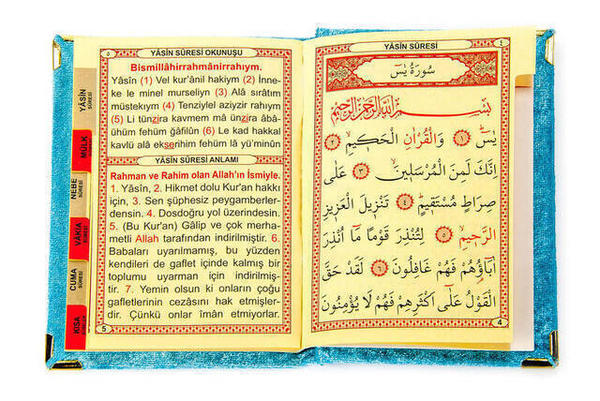 ٥
YÂSÎN SÛRESİ OKUNUŞU
Bismillâhirrahmânirrahıym.
Yâsîn (1) Vel kur'ânil hakiym (2) İnne-
ke le minel murseliyn (3) Alâ sırâtim
müstekıym (4) Tenziylel aziyzir rahıym
(5) Li tünzira kavmem mâ ünzira âbâ-
ühüm fehüm ğâfilûn (6) Le kad hakkal
kavlü alâ ekserihim fehüm lâ yü'minûn
YÂSÎN SÛRESİ ANLAMI
Rahman ve Rahim olan Allah'ın İsmiyle.
1. Yâsîn, 2. Hikmet dolu Kur'an hakkı
için, 3. Sen şüphesiz peygamberler-
densin. 4. Dosdoğru yol üzerindesin.
5. (Bu Kur'an) Gâlip ve çok merha-
metli Allah tarafından indirilmiştir. 6.
Babaları uyarılmamış, bu yüzden
kendileri de gaflet içinde kalmış bir
toplumu uyarman için indirilmiş-
tir. 7. Yemin olsun ki onların çoğu
gafletlerinin cezasını hak etmişler-
dir. Çünkü onlar îmân etmiyorlar.
5
YÂSİN SÛRESİ
MÜLK
NEBE SÛRESİ
VÂKIA SÛRESİ
CUMA SÛRESİ
KISA
YÂSÎN SÛRESİ
٤
سُورَةُ يٰسٓ
بِسْمِ اللّٰهِ الرَّحْمٰنِ الرَّحِيمِ
يٰسٓ ﴿١﴾ وَالْقُرْاٰنِ الْحَكِيمِ ﴿٢﴾
اِنَّكَ لَمِنَ الْمُرْسَلِينَ ﴿٣﴾ عَلٰى
صِرَاطٍ مُسْتَقِيمٍ ﴿٤﴾ تَنْزِيلَ الْعَزِيزِ
الرَّحِيمِ ﴿٥﴾ لِتُنْذِرَ قَوْمًا مَٓا اُنْذِرَ
اٰبَٓاؤُهُمْ فَهُمْ غَافِلُونَ ﴿٦﴾ لَقَدْ حَقَّ
الْقَوْلُ عَلٰٓى اَكْثَرِهِمْ فَهُمْ لَا يُؤْمِنُونَ
4